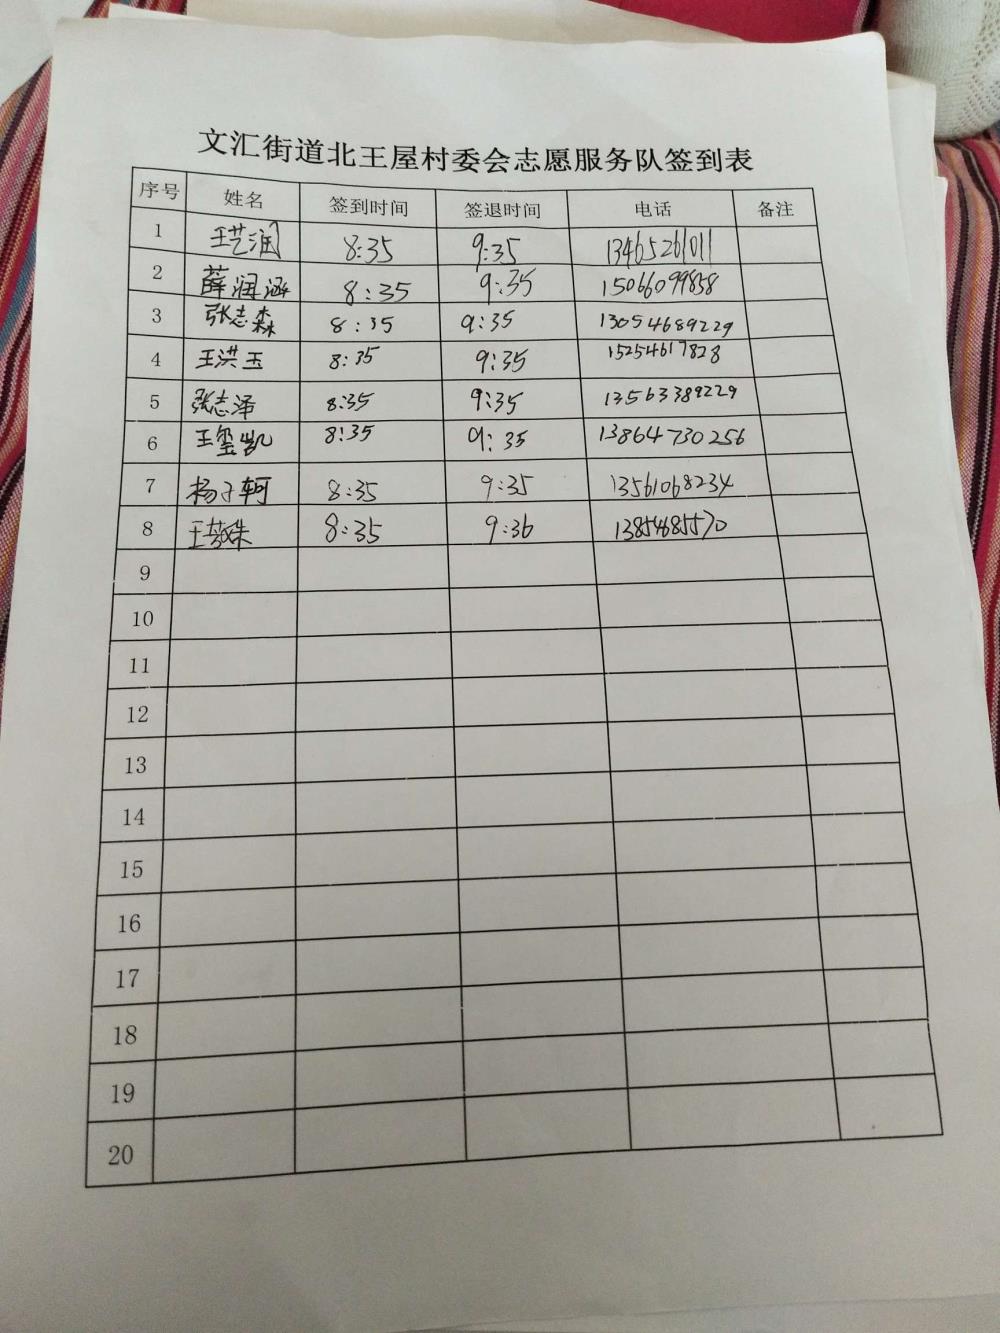 文汇街道北王屋村委会志愿服务队签到表
序号 姓名 签到时间 签退时间 电话 备注
1 王艺润 8:35 9:35 13465261011
2 薛润涵 8:35 9:35 15066099858
3 张志森 8:35 9:35 13054689229
4 王洪玉 8:35 9:35 15254617828
5 张志泽 8:35 9:35 13563389229
6 王玺凯 8:35 9:35 13864730256
7 杨子轲 8:35 9:35 13561068234
8 8:35 9:36 13854685570
9
10
11
12
13
14
15
16
17
18
19
20